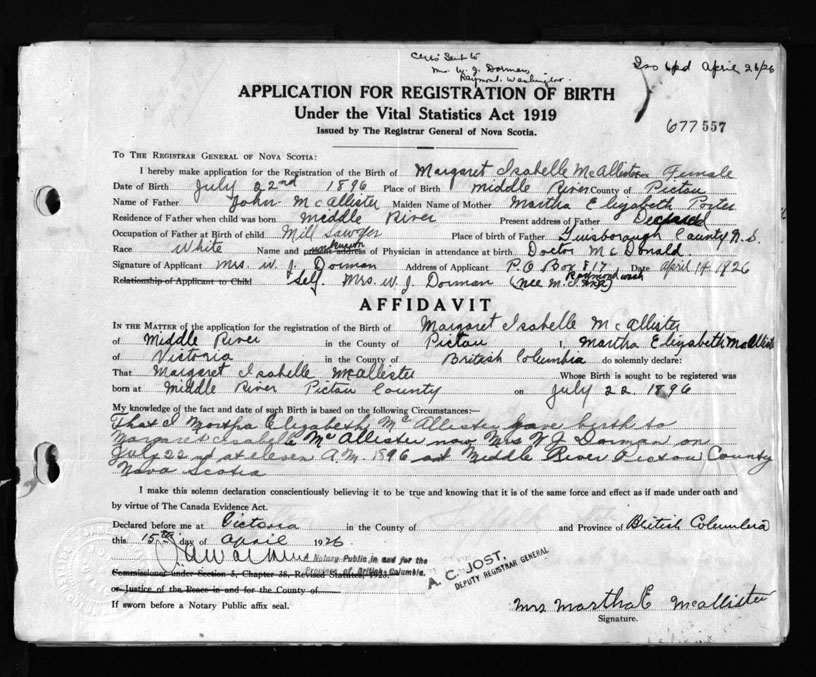 Sent to
Mrs. W. J. Dorman,
Raymond, Washington.
April 26/26
APPLICATION FOR REGISTRATION OF BIRTH
Under the Vital Statistics Act 1919
Issued by The Registrar General of Nova Scotia.
677557
TO THE REGISTRAR GENERAL OF NOVA SCOTIA:
I hereby make application for the Registration of the Birth of Margaret Isabelle McAllister Female
Date of Birth July 22nd 1896 Place of Birth Middle River County of Pictou
Name of Father John McAllister Maiden Name of Mother Martha Elizabeth Porter
Residence of Father when child was born Middle River Present address of Father Deceased
Occupation of Father at Birth of child Mill Sawyer Place of birth of Father Guisborough County N.S.
Race White Name and present address of Physician in attendance at birth Doctor McDonald.
Signature of Applicant Mrs. W. J. Dorman Address of Applicant P.O Box 817 Raymond Wash Date April 14, 1926
Relationship of Applicant to Child Self. Mrs. W. J. Dorman (nee M. I.
AFFIDAVIT
IN THE MATTER of the application for the registration of the Birth of Margaret Isabelle McAllister
of Middle River in the County of Pictou I, Martha Elizabeth McAllister
of Victoria in the County of British Columbia do solemnly declare:
That Margaret Isabelle McAllister Whose Birth is sought to be registered was
born at Middle River Pictou County on July 22. 1896
My knowledge of the fact and date of such Birth is based on the following Circumstances:—
That I Martha Elizabeth McAllister gave birth to
Margaret Isabelle McAllister now Mrs W J Dorman on
July 22nd at eleven A.M. 1896 at Middle River Pictou County
Nova Scotia
I make this solemn declaration conscientiously believing it to be true and knowing that it is of the same force and effect as if made under oath and
by virtue of The Canada Evidence Act.
Declared before me at Victoria in the County of and Province of British Columbia
this 15th day of April 1926
Notary Public in and for the
Province of British Columbia.
Commissioner under Section 5, Chapter 38, Revised Statutes, 1923.
or Justice of the Peace in and for the County of
If sworn before a Notary Public affix seal.
A. C. JOST,
DEPUTY REGISTRAR GENERAL
Mrs Martha E McAllister
Signature.